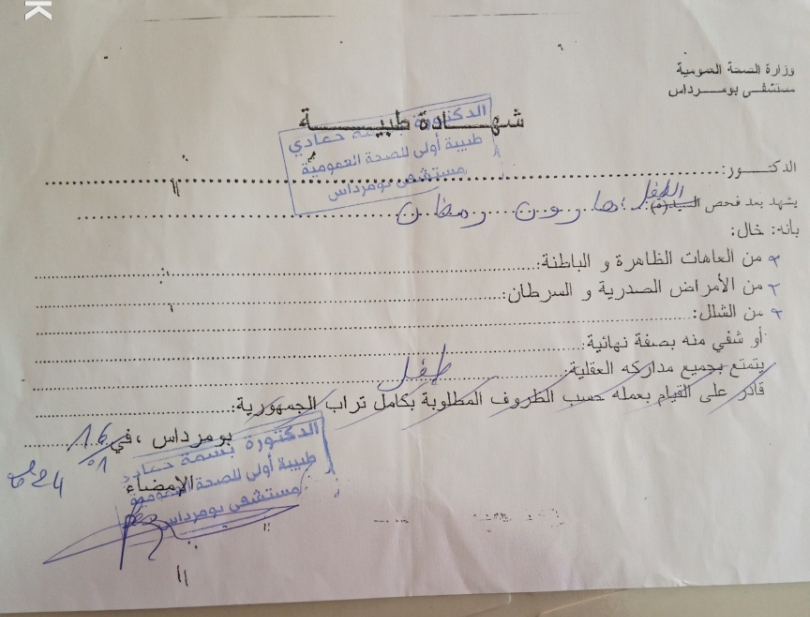 وزارة الصحة العمومية
مستشفى بومرداس
شهادة طبية
الدكتورة بسمة حمادي
طبيبة أولى للصحة العمومية
مستشفى بومرداس
الدكتور:
يشهد بعد فحص السيد(ة): الطفل هارون رمضان
بأنه: خال:
من العاهات الظاهرة و الباطنة:
من الأمراض الصدرية و السرطان:
من الشلل:
أو شفي منه بصفة نهائية:
يتمتع بجميع مداركه العقلية: طفل
قادر على القيام بعمله حسب الظروف المطلوبة بكامل تراب الجمهورية:
بومرداس ،في 16/01
24
الإمضاء
الدكتورة بسمة حمادي
طبيبة أولى للصحة العمومية
مستشفى بومرداس
K